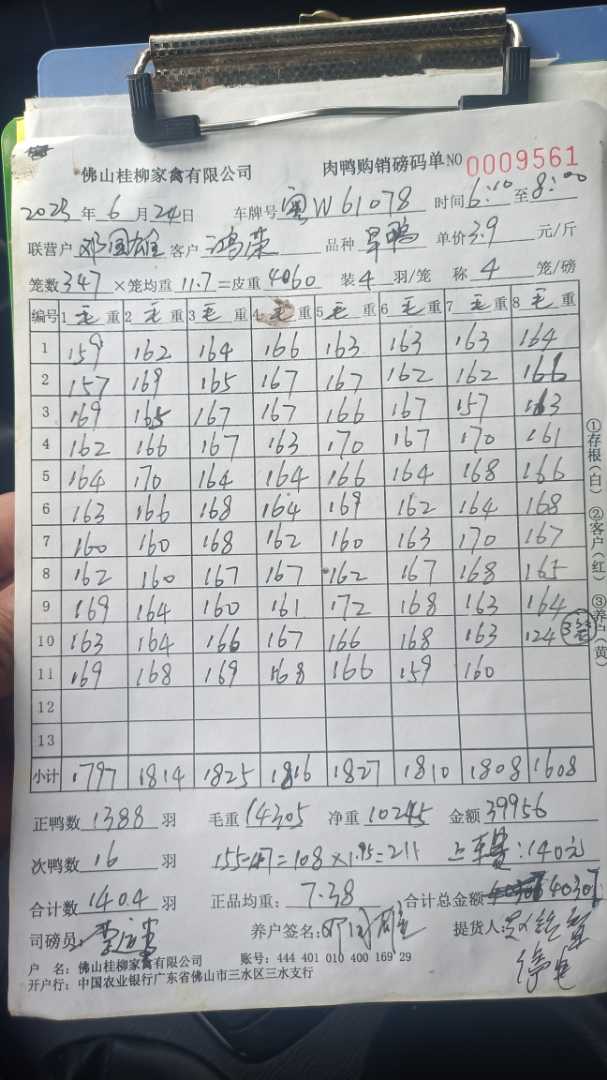 佛山桂柳家禽有限公司 肉鸭购销磅码单 NO 0009561
2025年6月24日 车牌号 粤W61078 时间 6:10 至 8:00
联营户 邓国雄 客户 鸿荣 品种 旱鸭 单价 3.9 元/斤
笼数 347 ×笼均重 11.7 =皮重 4060 装 4 羽/笼 称 4 笼/磅
编号 1 毛 重 2 毛 重 3 毛 重 4 毛 重 5 毛 重 6 毛 重 7 毛 重 8 毛 重
1 159 162 164 166 163 163 163 164
2 157 169 165 167 167 162 162 166
3 169 165 167 167 166 167 157 163
4 162 166 167 163 170 167 170 161
5 164 170 164 164 166 164 168 166
6 163 166 168 164 169 162 164 168
7 160 160 168 162 160 163 170 167
8 162 160 167 167 162 167 168 165
9 169 164 160 161 172 168 163 164
10 163 164 166 167 166 168 163 124 3笼
11 169 168 169 168 166 159 160
12
13
小计 1797 1814 1825 1816 1827 1810 1808 1608
①存根(白) ②客户(红) ③养户(黄)
正鸭数 1388 羽 毛重 14305 净重 10245 金额 39956
次鸭数 16 羽 155-47=108×1.95=211 上车费:140元
合计数 1404 羽 正品均重: 7.38 合计总金额 40307
司磅员: 养户签名: 邓国雄 提货人:
户 名: 佛山桂柳家禽有限公司 账号: 444 401 010 400 169 29
开户行: 中国农业银行广东省佛山市三水区三水支行